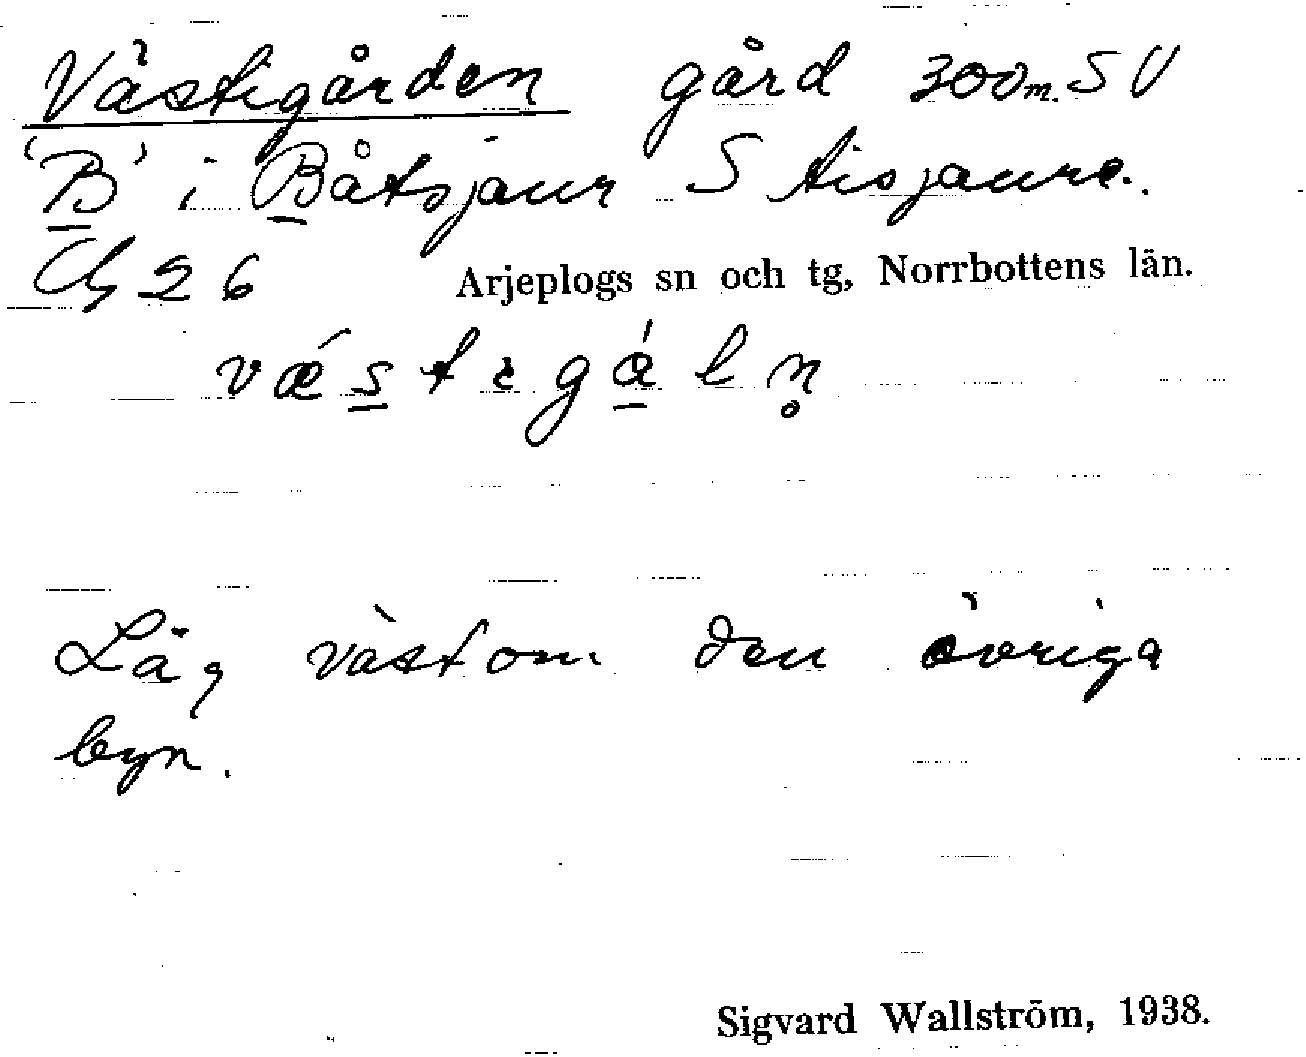 Västigården gård 300m. SV
'B' i Båtsjaur S Tisjaure.
26 Arjeplogs sn och tg, Norrbottens län.
Låg västom den övriga
byn.
Sigvard Wallström, 1938.